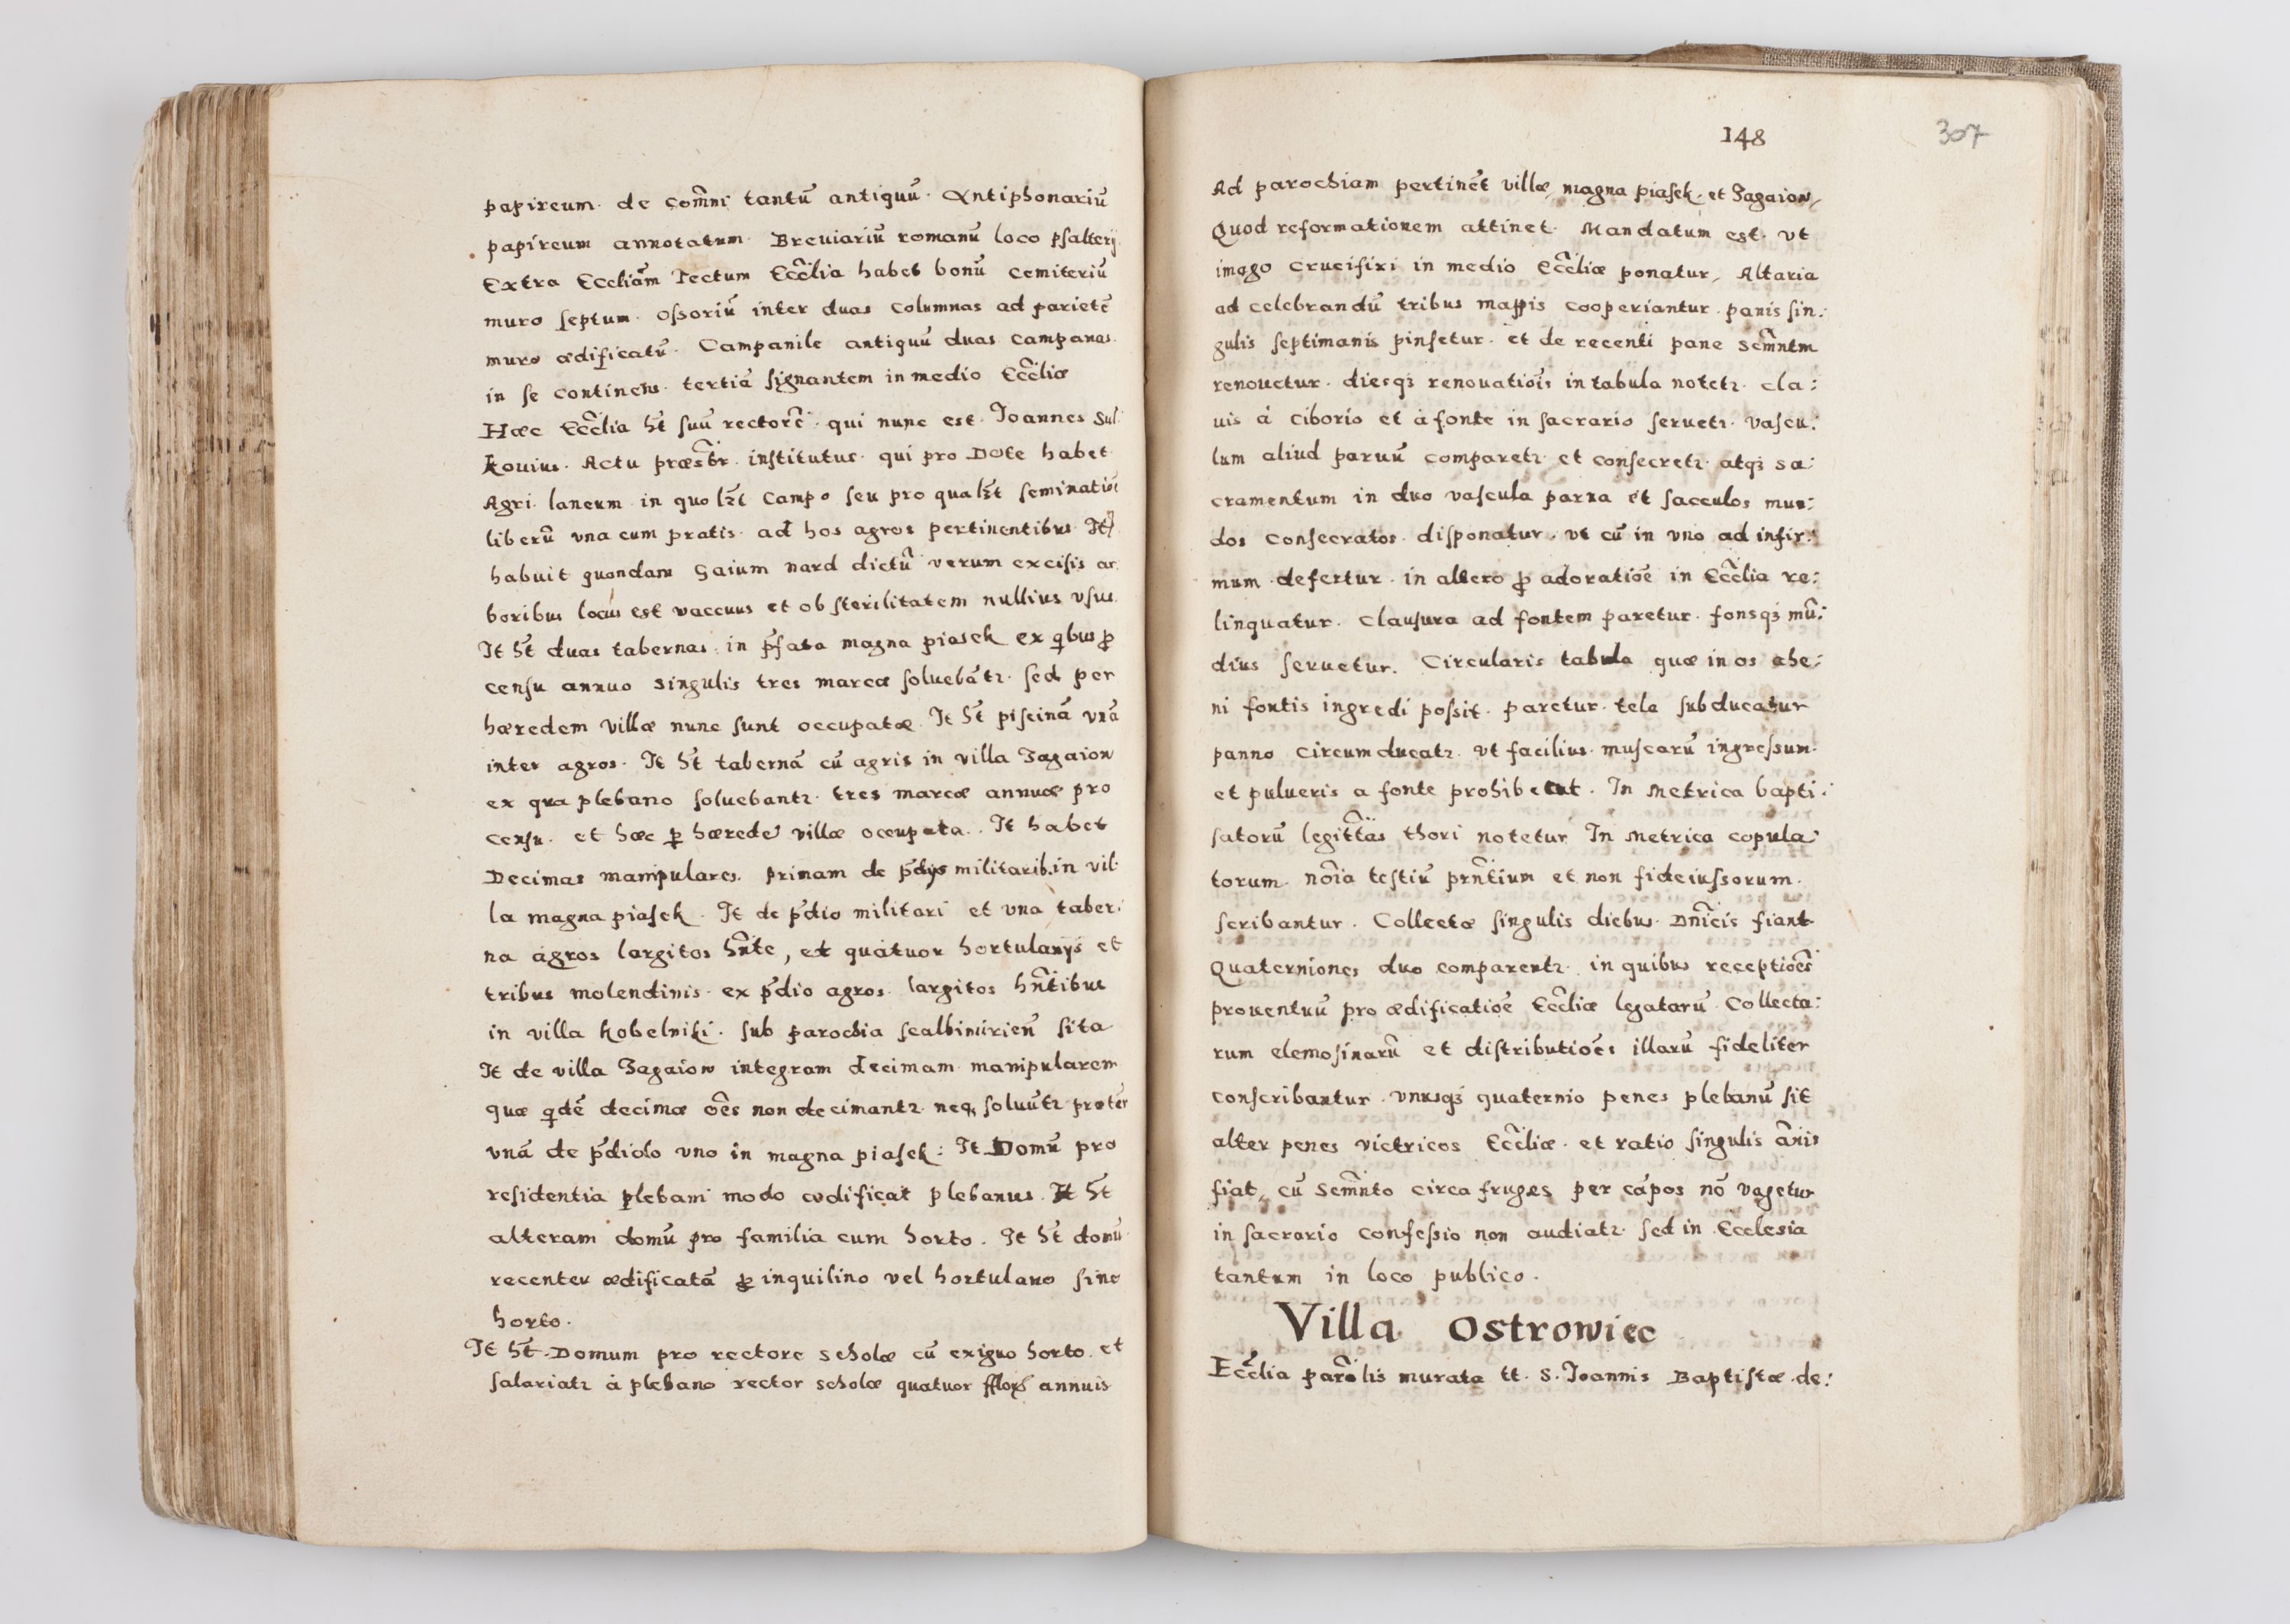 papireum. de com̃ni tantũ antiquũ. Antiphonariũ
papireum annotatum. Breuiariũ romanũ loco psalterij
Extra Eccliãm Tectum Eccl̃ia habet bonũ cemiteriũ
muro septum. Ossoriũ inter duas columnas ad parietẽ
muro ædificatũ. Campanile antiquũ duas campanas.
in se continens. tertiã signantem in medio Eccl̃iæ
Hæc Eccl̃ia hт̃ suũ rectorẽ. qui nunc est. Joannes Sul
kouius. Actu præsb̃r. institutus. qui pro Dote habet
Agri. laneum. in quolz̃t campo seu pro qualz̃t seminatiõe
liberũ vna cum pratis. ad hos agros pertinentibus. Jt
habuit quondam Gaium nard dictũ verum excisis ar
boribus locus est vaccuus et ob sterilitatem nullius vsus.
Jt hт̃ duas tabernas. in p̃fata magna piasek ex qbus ꝓ
censu annuo singulis tres marcæ soluebãtr. sed per
hæredem villæ nunc sunt occupatæ. Jt hт̃ piscinã vnã
inter agros. Jt hт̃ tabernã cũ agris in villa Zagaion
ex qua plebano soluebantr. tres marcæ annuæ pro
censu. et hæc ꝑ hærede villæ occupata. Jt habet
Decimas manipulares. primam de p̃dijs militarib. in vil.
la magna piasek. Jt de p̃dio militari et vna taber:
na agros largitos hñte, et quatuor hortulanijs et
tribus molendinis. ex p̃dio agros. largitos hñtibus
in villa kobelniki. sub parochia scalbimirieñ sita
Jt de villa Zagaion integram decimam manipularem
quæ qdẽ decimæ oẽs non decimantr. neq; soluũtr præter
vnã de p̃diolo vno in magna piasek: Jt Domũ pro
residentia plebani modo ædificat plebanus. Jt hт̃
alteram domũ pro familia cum horto. Jt hт̃ domũ
recenter ædificatã ꝓ inquilino vel hortulano sine
horto.
Jt hт̃. Domum pro rectore scholæ cũ exiguo horto. et
salariatr à plebano rector scholæ quatuor annuis
148
307
Ad parochiam pertinẽt villæ, magna piasek. et Zagaion,
Quod reformationem attinet. Mandatum est. vt
imago crucifixi in medio Eccl̃iæ ponatur, Altaria
ad celebrandũ tribus mappis cooperiantur. panis sin:
gulis septimanis pinsetur. et de recenti pane Sem̃ntm
renouetur. diesqꝫ renouatiõis in tabula notetr. cla:
uis à ciborio et à fonte in sacrario seruetr. vascu:
lum aliud paruũ comparetr. et consecretr. atqꝫ sa:
cramentum in duo vascula parua et sacculos mun:
dos consecratos. disponatur. vt cũ in vno ad infir:
mum. defertur. in altero ꝓ adoratiõe in Eccl̃ia re:
linquatur. Clausura ad fontem paretur. fonsqꝫ mũ:
dius seruetur. Circularis tabula quæ in os ahe:
ni fontis ingredi possit. paretur. tela subducatur
panno circumducatr. vt facilius. muscarũ ingressum.
et pulueris a fonte prohibeat. In Metrica bapti:
satorũ legittĩas thori notetur. In Metrica copula
torum. noĩa testiũ prñtium et non fideiussorum.
scribantur. Collectæ singulis diebus. Dñicis fiant
Quaterniones duo comparentr. in quibus receptiões
prouentuũ pro ædificatiõe Eccl̃iæ legatarũ. Collecta:
rum elemosinarũ et distributiões illarũ fideliter
conscribantur. vnusqꝫ quaternio penes plebanũ sit
alter penes victricos Eccl̃iæ. et ratio singulis ãnis
fiat, cũ Sem̃nto circa fruges per cãpos nõ vagetur
in sacrario confessio non audiatr. sed in Ecclesia
tantum in loco publico.
Villa Ostrowiec
Eccl̃ia parõlis murata tt. S. Joannis Baptistæ. de: